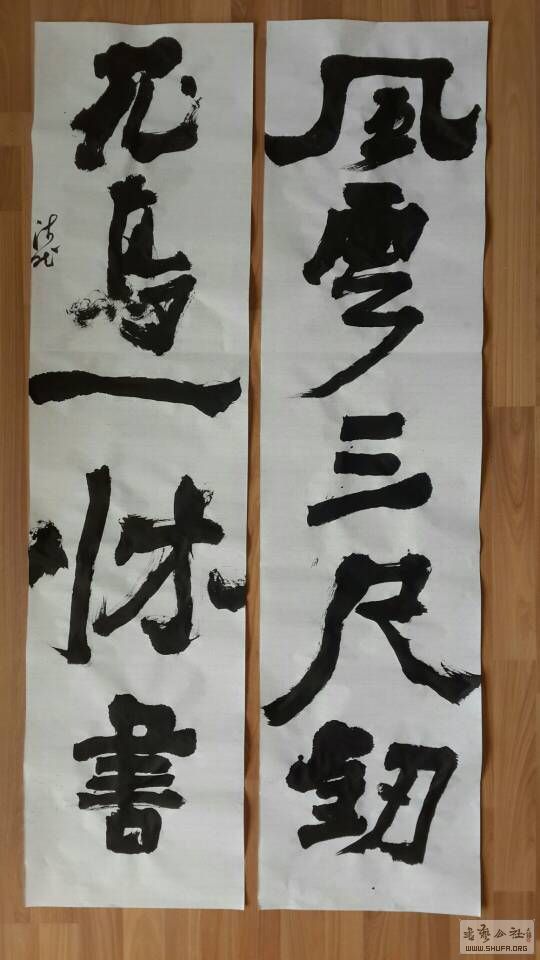 風雲三尺釼
花鳥一牀書
书艺公社
WWW.SHUFA.ORG